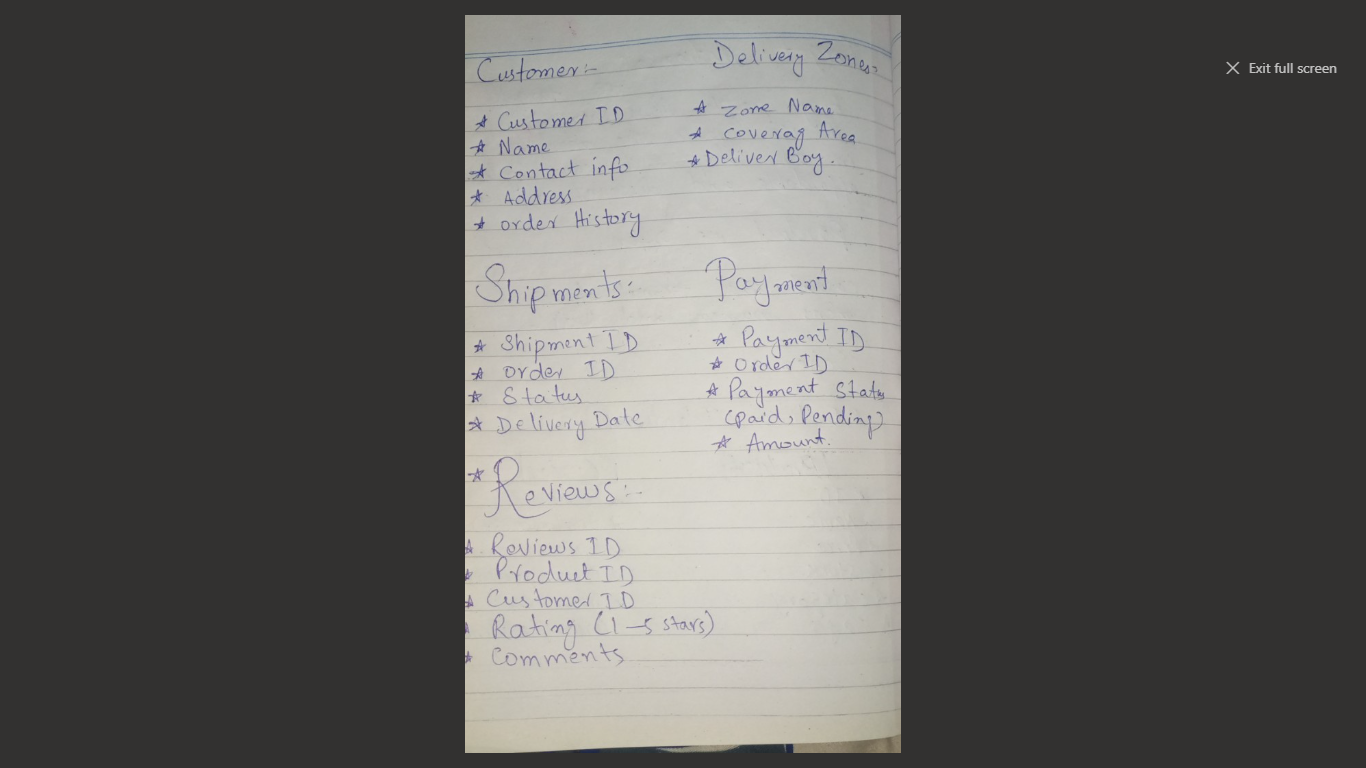 Customer:-
* Customer ID
* Name
* Contact info
* Address
* order History
Delivery Zones.
* Zone Name
* Coverag Area
* Deliver Boy.
Shipments:-
* Shipment ID
* order ID
* Status
* Delivery Date
Payment
* Payment ID
* Order ID
* Payment Status
(paid, Pending)
* Amount.
* Reviews:-
* Reviews ID
* Product ID
* Customer ID
* Rating (1-5 stars)
* Comments
Exit full screen